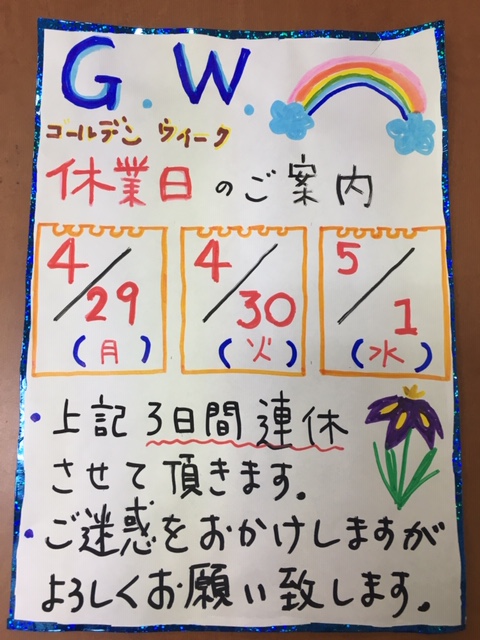 G.W.
ゴールデン ウィーク
休業日のご案内
4/29 4/30 5/1
(月) (火) (水)
・上記3日間連休
させて頂きます。
・ご迷惑をおかけしますが
よろしくお願い致します。